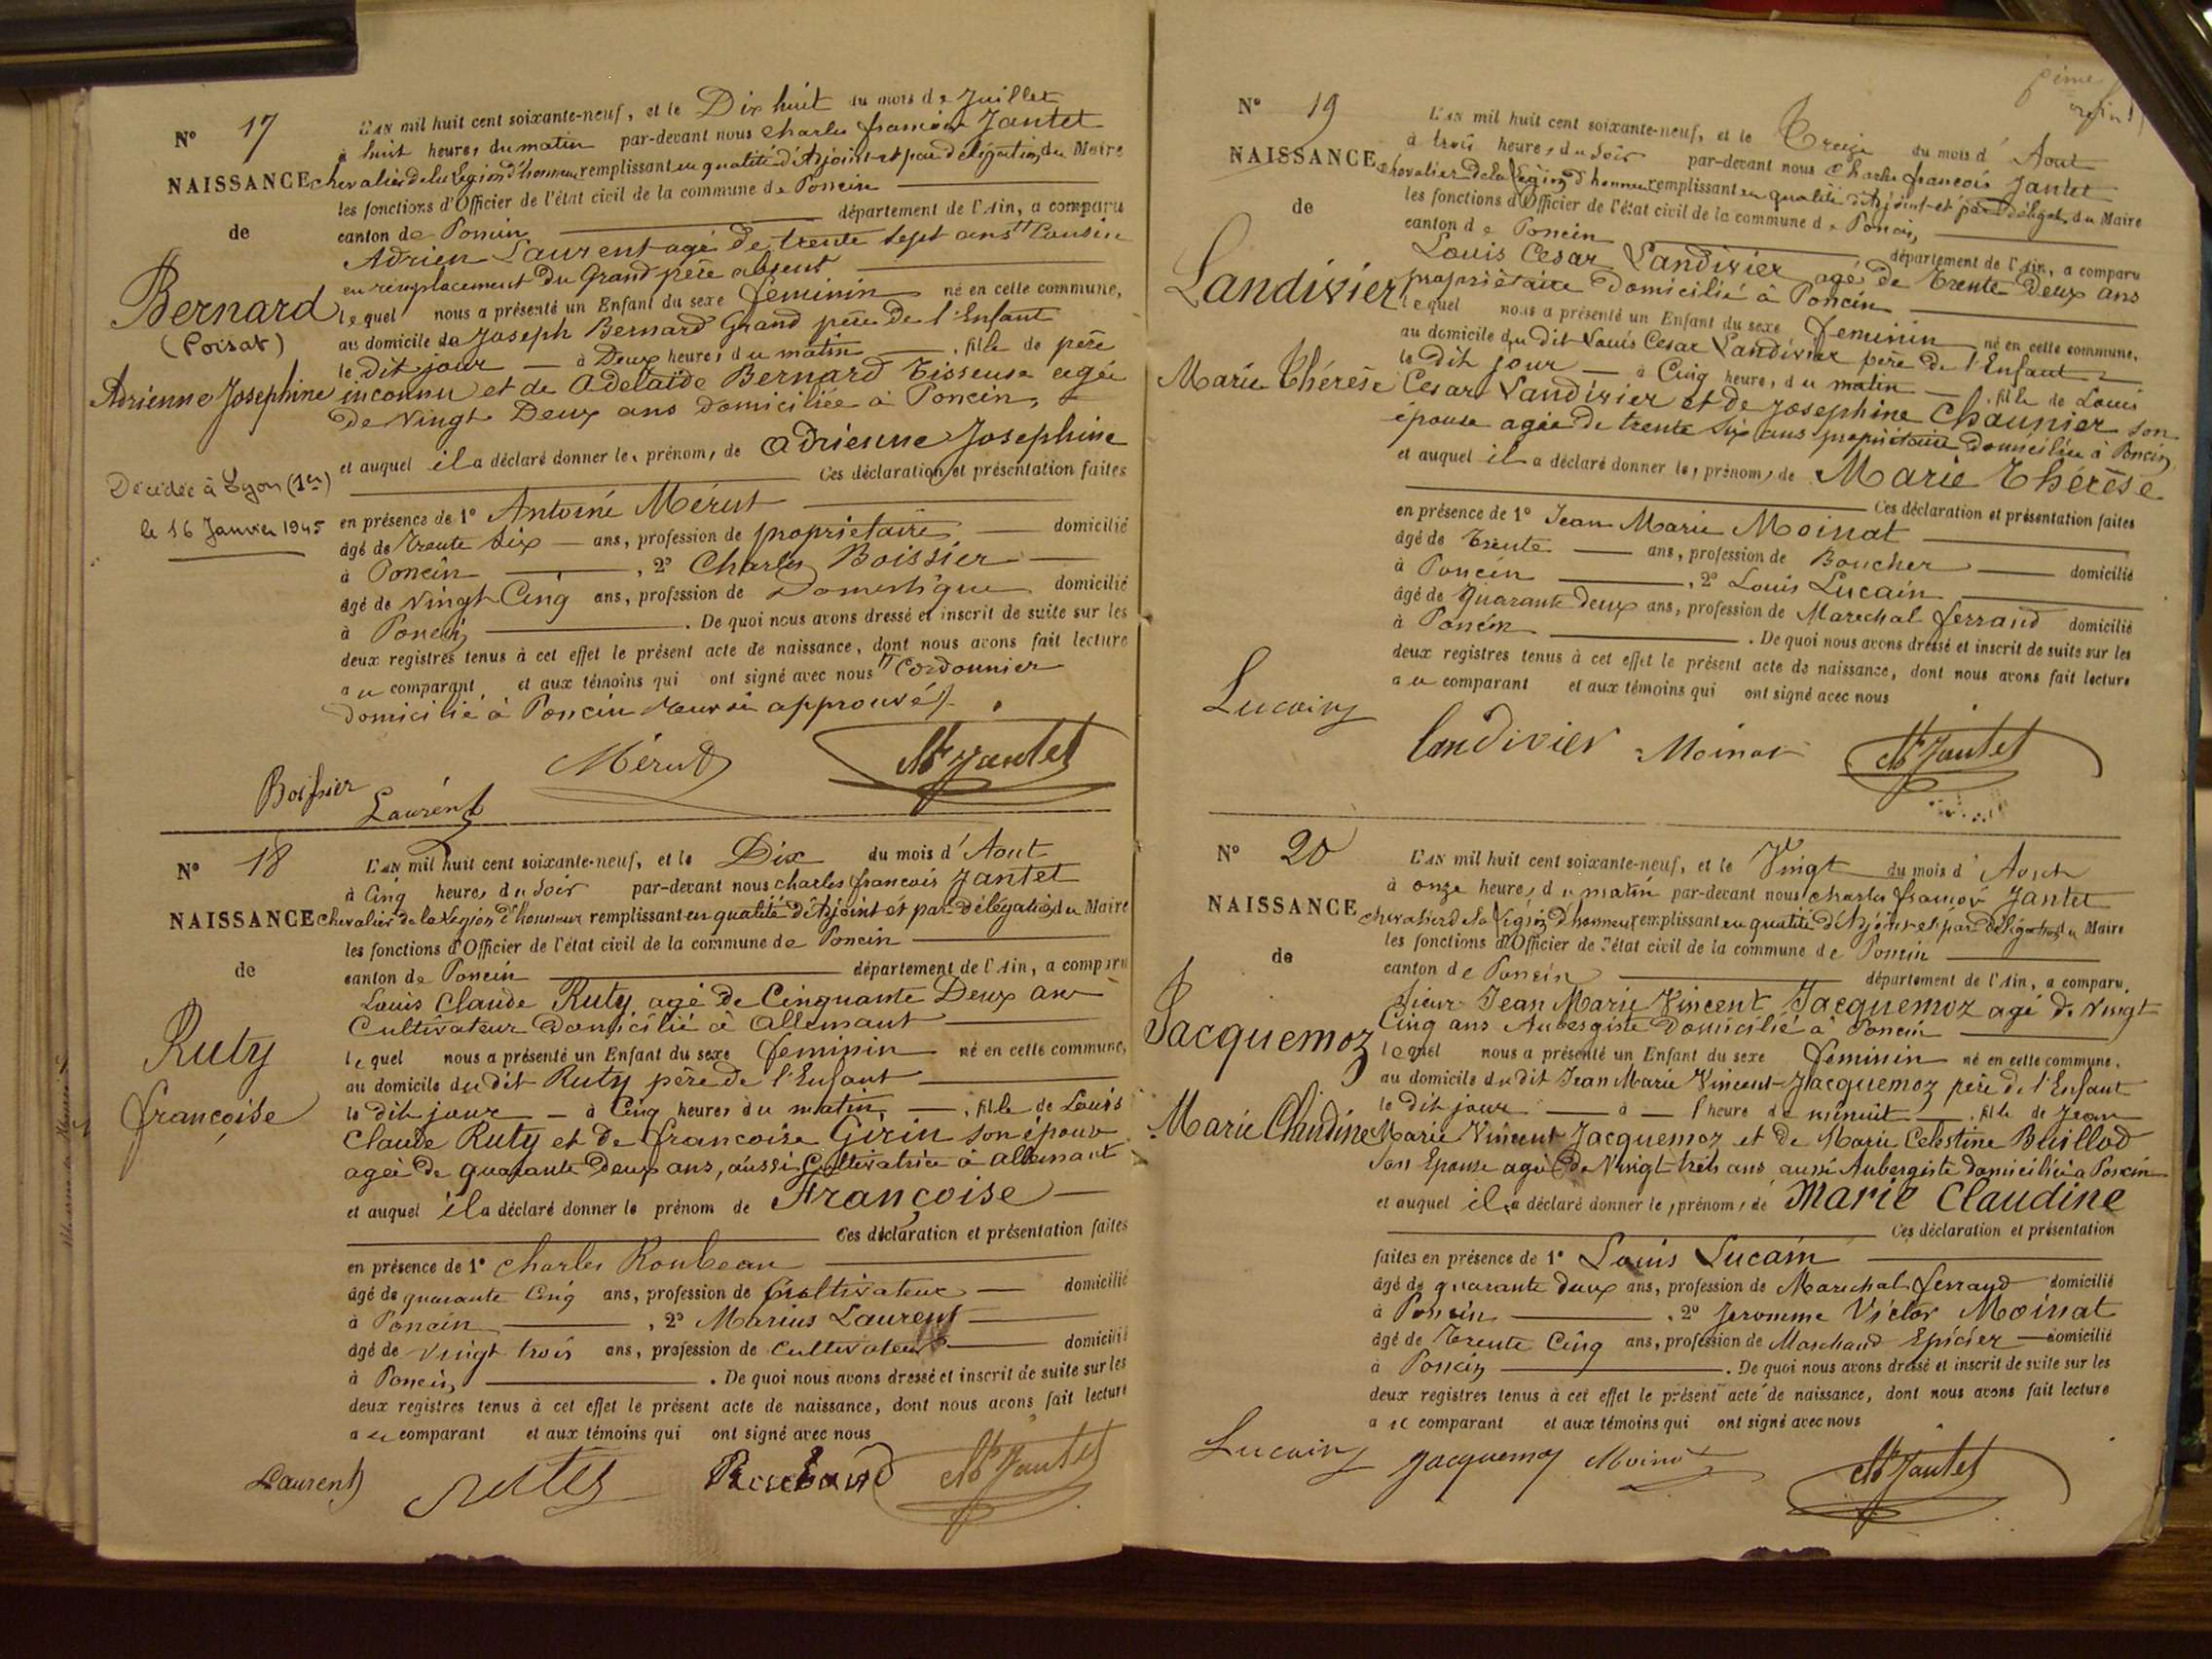 N° 17
NAISSANCE
de
Bernard
(Poisat)
Adrienne Josephine
Décédée à Lyon (1er)
le 16 Janvier 1945
L'AN mil huit cent soixante-neuf, et le Dix huit du mois de Juillet
à huit heures du matin par-devant nous Charles françois Jantet
chevalier de la Légion d'honneur remplissant en qualité d'Adjoint et par délégation du Maire
les fonctions d'Officier de l'état civil de la commune de Poncin
canton de Poncin département de l'Ain, a comparu
Adrien Laurent agé de trente sept ans Cousin
en remplacement du Grand père absent
lequel nous a présenté un Enfant du sexe féminin né en cette commune,
au domicile de Joseph Bernard Grand père de l'Enfant
le dit jour à Deux heures du matin, fille de père
inconnu et de Adelaïde Bernard Tisseuse agée
de Vingt Deux ans domiciliée à Poncin,
et auquel il a déclaré donner les prénoms de Adrienne Josephine
Ces déclaration et présentation faites
en présence de 1° Antoine Mérut
âgé de Trente six ans, profession de propriétaire domicilié
à Poncin, 2° Charles Boissier
âgé de Vingt Cinq ans, profession de Domestique domicilié
à Poncin. De quoi nous avons dressé et inscrit de suite sur les
deux registres tenus à cet effet le présent acte de naissance, dont nous avons fait lecture
au comparant, et aux témoins qui ont signé avec nous Cordonnier
domicilié à Poncin renvoi approuvé
Mérut Mr Jantet
Boissier
Laurent
N° 18
NAISSANCE
de
Ruty
françoise
L'AN mil huit cent soixante-neuf, et le Dix du mois d'Aout
à Cinq heures du soir par-devant nous charles françois Jantet
chevalier de la Légion d'honneur remplissant en qualité d'Adjoint et par délégation du Maire
les fonctions d'Officier de l'état civil de la commune de Poncin
canton de Poncin département de l'Ain, a comparu
Louis Claude Ruty agé de Cinquante Deux ans
Cultivateur domicilié à Allemant
lequel nous a présenté un Enfant du sexe feminin né en cette commune,
au domicile du dit Ruty père de l'Enfant
le dit jour à Cinq heures du matin, fille de Louis
Claude Ruty et de francoise Girin son épouse
agée de quarante Deux ans, aussi Cultivatrice à Allemant
et auquel il a déclaré donner le prénom de Françoise
Ces déclaration et présentation faites
en présence de 1° Charles Roubeau
âgé de quarante Cinq ans, profession de Cultivateur domicilié
à Poncin, 2° Marius Laurent
âgé de Vingt trois ans, profession de Cultivateur domicilié
à Poncin. De quoi nous avons dressé et inscrit de suite sur les
deux registres tenus à cet effet le présent acte de naissance, dont nous avons fait lecture
au comparant et aux témoins qui ont signé avec nous
Laurent Mr Jantet
N° 19
NAISSANCE
de
Landivier
Marie Thérèse
L'AN mil huit cent soixante-neuf, et le Treize du mois d'Aout
à trois heures du soir par-devant nous Charles françois Jantet
chevalier de la Légion d'honneur remplissant en qualité d'Adjoint et par délégat. du Maire
les fonctions d'Officier de l'état civil de la commune de Poncin,
canton de Poncin département de l'Ain, a comparu
Louis Cesar Landivier agé de Trente Deux ans
propriétaire domicilié à Poncin
lequel nous a présenté un Enfant du sexe feminin né en cette commune,
au domicile du dit Louis Cesar Landivier père de l'Enfant
le dit jour à Cinq heures du matin, fille de Louis
Cesar Landivier et de Josephine Chaunier son
épouse agée de trente six ans propriétaire domiciliée à Poncin,
et auquel il a déclaré donner les prénoms de Marie Thérèse
Ces déclaration et présentation faites
en présence de 1° Jean Marie Moinat
âgé de Trente ans, profession de Boucher domicilié
à Poncin, 2° Louis Lucain
âgé de Quarante deux ans, profession de Marechal ferrand domicilié
à Poncin. De quoi nous avons dressé et inscrit de suite sur les
deux registres tenus à cet effet le présent acte de naissance, dont nous avons fait lecture
au comparant et aux témoins qui ont signé avec nous
Lucain
Landivier Moinat Mr Jantet
N° 20
NAISSANCE
de
Jacquemoz
Marie Claudine
L'AN mil huit cent soixante-neuf, et le Vingt du mois d'Aout
à onze heures du matin par-devant nous charles françois Jantet
chevalier de la Légion d'honneur remplissant en qualité d'Adjoint et par délégation du Maire
les fonctions d'Officier de l'état civil de la commune de Poncin
canton de Poncin département de l'Ain, a comparu,
Sieur Jean Marie Vincent Jacquemoz agé de Vingt
Cinq ans Aubergiste domicilié à Poncin
lequel nous a présenté un Enfant du sexe feminin né en cette commune,
au domicile du dit Jean Marie Vincent Jacquemoz père de l'Enfant
le dit jour à l'heure de minuit, fille de Jean
Marie Vincent Jacquemoz et de Marie Celestine Buillod
son Epouse agée de Vingt trois ans aussi Aubergiste domiciliée à Poncin
et auquel il a déclaré donner les prénoms de Marie Claudine
Ces déclaration et présentation
faites en présence de 1° Louis Lucain
âgé de quarante deux ans, profession de Marechal ferrand domicilié
à Poncin, 2° Jeromme Victor Moinat
âgé de Trente Cinq ans, profession de Marchand Epicier domicilié
à Poncin. De quoi nous avons dressé et inscrit de suite sur les
deux registres tenus à cet effet le présent acte de naissance, dont nous avons fait lecture
au comparant et aux témoins qui ont signé avec nous
Lucain Jacquemoz Moinat Mr Jantet